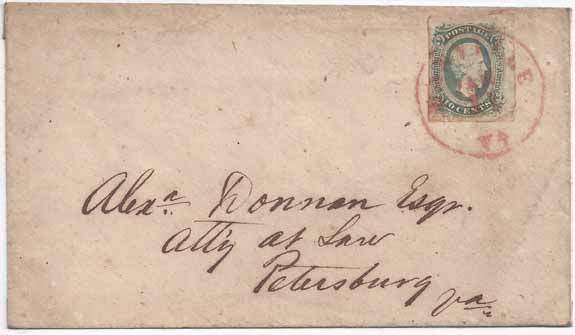 POSTAGE
TEN CENTS
VA
Alexa. Donnan Esqr.
Atty at Law
Petersburg
Va